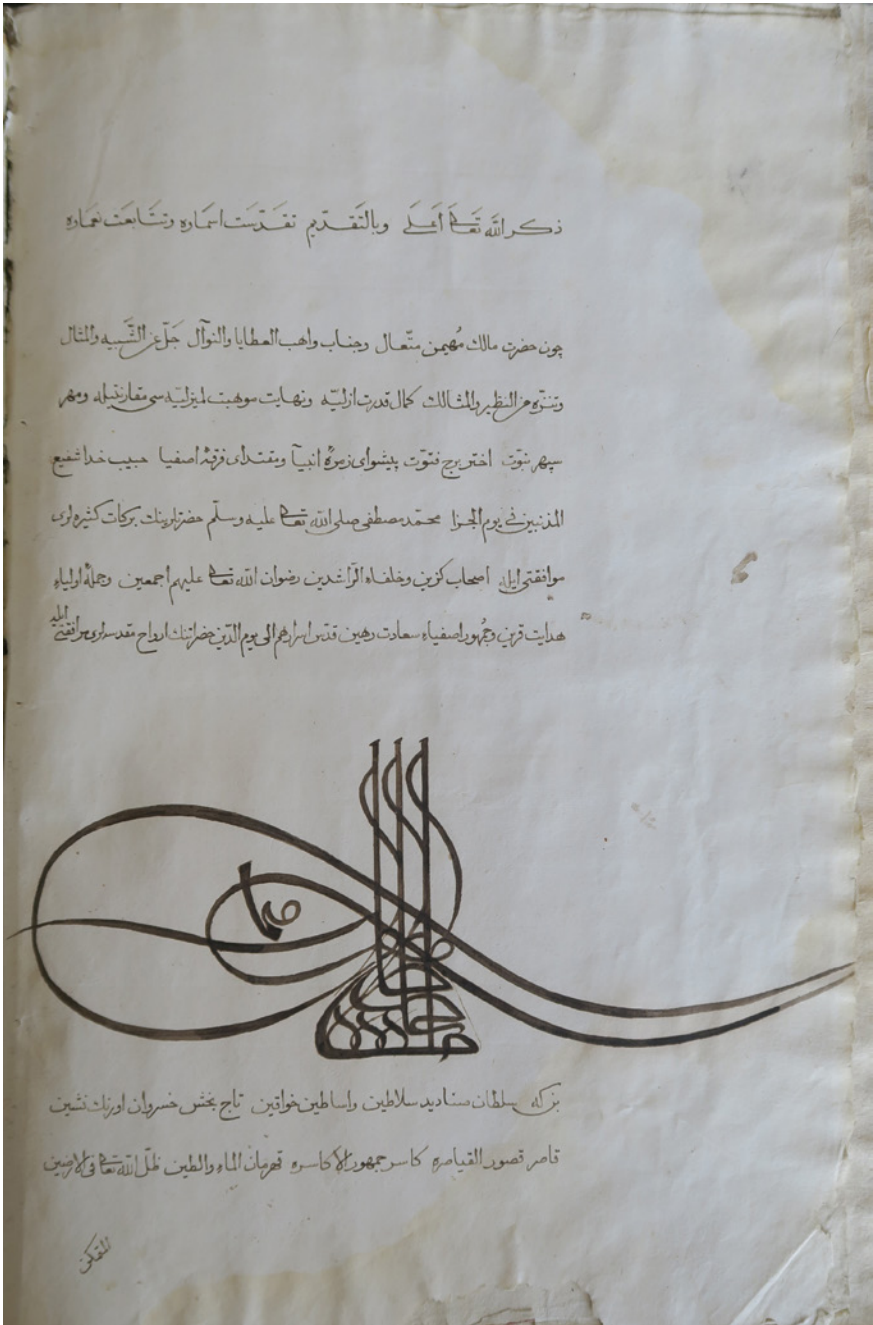 ذكر الله تَعَالَى أَعلَى وبالتَقديم تقَدّسَت اسمَاره وتتَابعَت نعمَاره
چون حضرت مالك مُهيمن متّعال وجناب واهب العطايا والنوآل جَلّ عن الشَّبيه والمثال
وتنزّه من النظير والمثالك كمال قدرت ازليّه ونهايت موهبت لميزليّه سى مقارنتيله ومهر
سپهر نبوّت اختر برج فتوّت پيشواى زمرهٔ انبيآ ومقتداى فرقهٔ اصفيا حبيب خدا شفيع
المذنبين فى يوم الجزا محمّد مصطفى صلى الله تعالى عليه وسلّم حضرتلرينك بركات كثيره لرى
موافقتى ايله اصحاب كزين وخلفاء الرّاشدين رضوان الله تعالى عليهم اجمعين وجملهٔ اولياء
هدايت قرين وجُمهور اصفياء سعادت رهين قدّس اسرارهم الى يوم الدّين حضراتنك ارواح مقدسه لرى مرافقتى ايله
بن كه سلطان صناديد سلاطين واساطين خواقين تاج بخش خسروان اورنك نشين
قاصر قصور القياصره كاسر جمهور الاكاسره قهرمان الماء والطين ظلّ الله تعالى فى الارضين
المتمكن